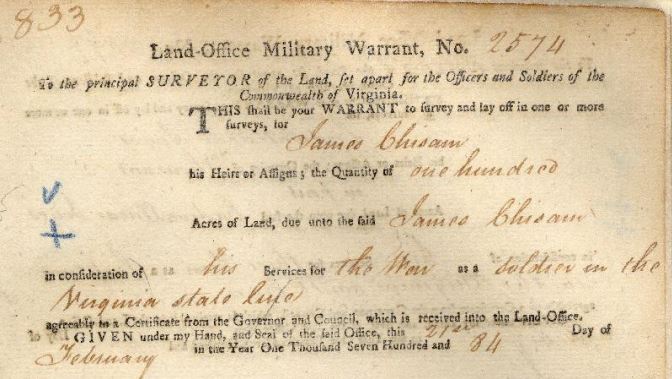 833
Land-Office Military Warrant, No. 2574
To the principal SURVEYOR of the Land, set apart for the Officers and Soldiers of the
Commonwealth of Virginia.
THIS shall be your WARRANT to survey and lay off in one or more
surveys, for
James Chisam
his Heirs or Assigns; the Quantity of one hundred
Acres of Land, due unto the said James Chisam
in consideration of his Services for the War as a soldier in the
Virginia state line
agreeably to a Certificate from the Governor and Council, which is received into the Land-Office.
GIVEN under my Hand, and Seal of the said Office, this 21st Day of
February in the Year One Thousand Seven Hundred and 84